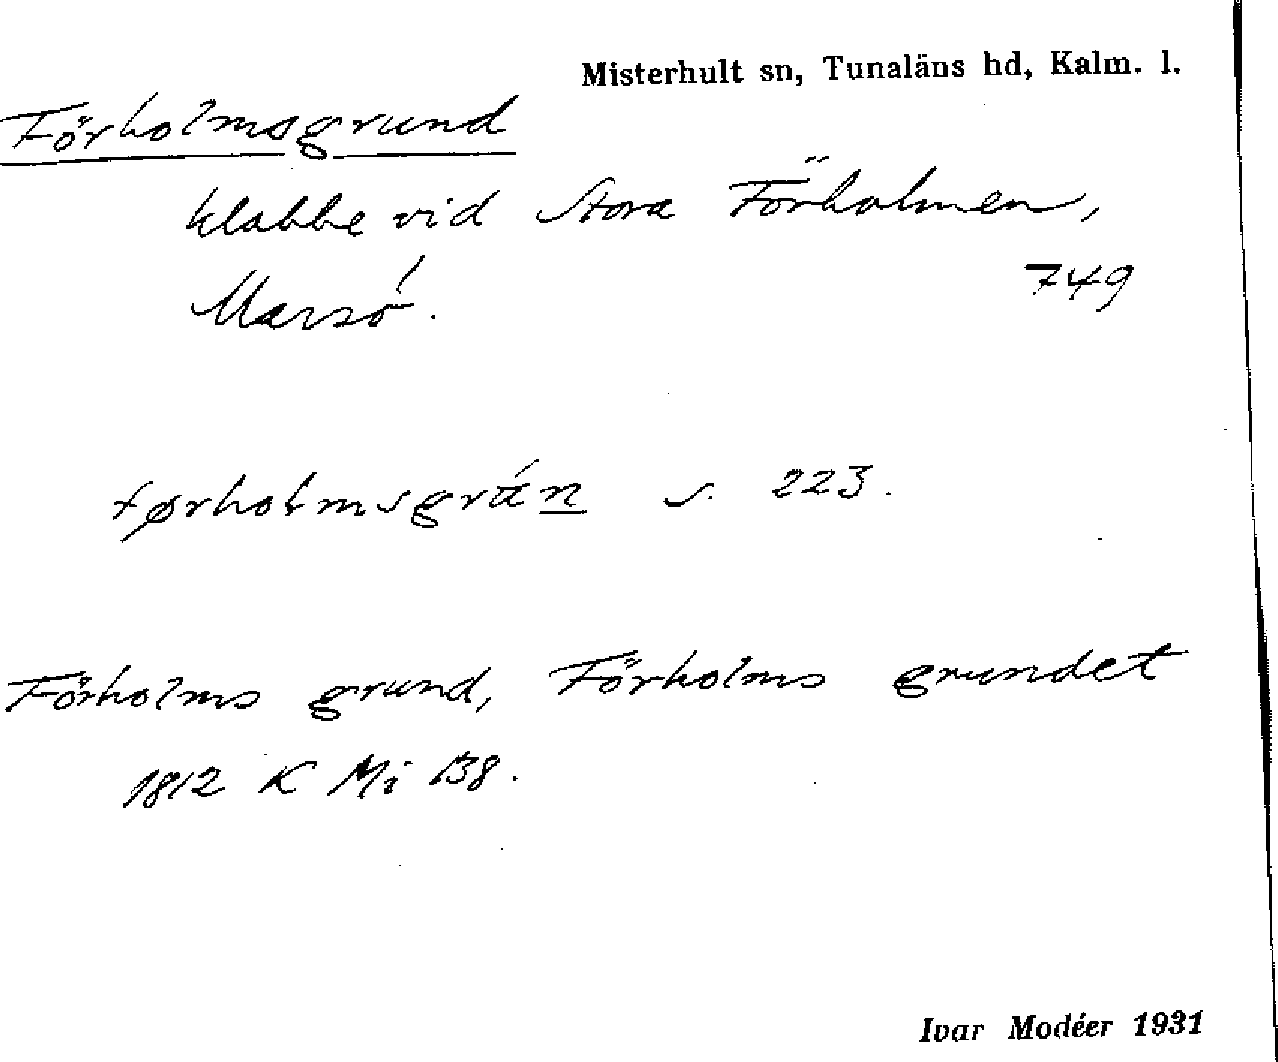 Misterhult sn, Tunaläns hd, Kalm. l.
Förholmsgrund
klabbe vid Stora Förholmen,
Marsö. 749
førholmsgrán s. 223.
Förholms grund, Förholms grundet
1812 K Mi B8.
Ivar Modéer 1931